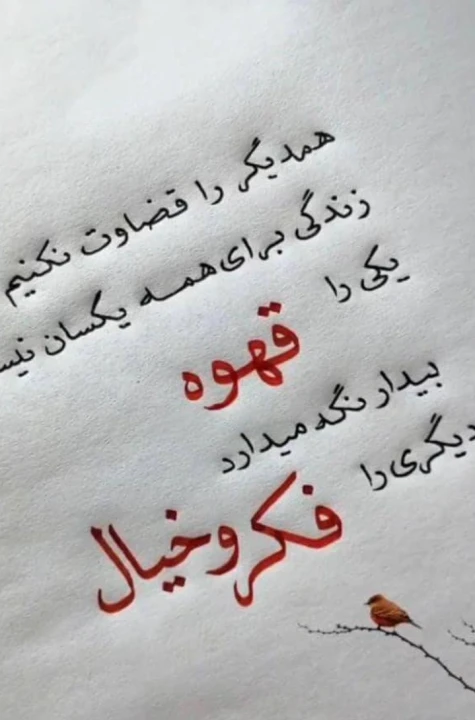 همدیگر را قضاوت نکنیم
زندگی برای همه یکسان نیس
یکی را
قهوه
بیدار نگه میدارد
دیگری را
فکر و خیال